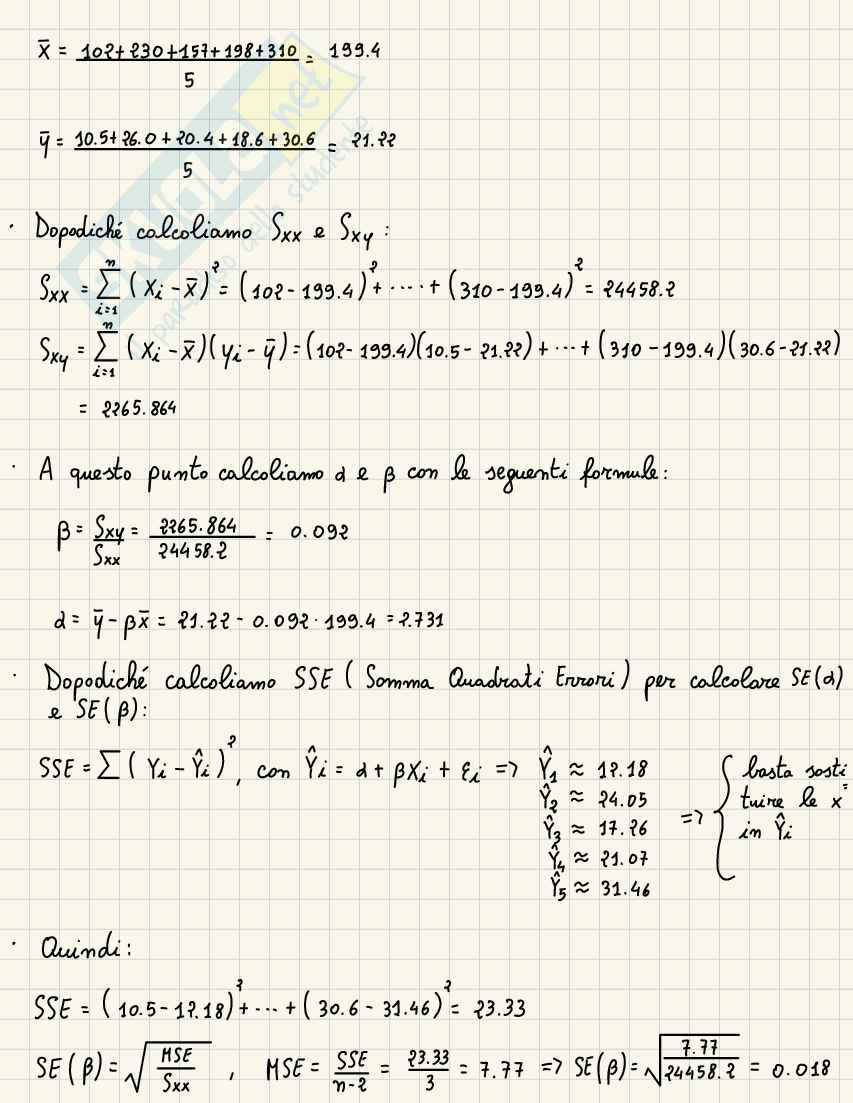 x̄ = (102+230+157+198+310)/5 = 199.4
ȳ = (10.5+26.0+20.4+18.6+30.6)/5 = 21.22
· Dopodiché calcoliamo Sxx e Sxy:
Sxx = Σ_{i=1}^{n} (Xi - x̄)² = (102 - 199.4)² + ···· + (310 - 199.4)² = 24458.2
Sxy = Σ_{i=1}^{n} (Xi - x̄)(yi - ȳ) = (102 - 199.4)(10.5 - 21.22) + ··· + (310 - 199.4)(30.6 - 21.22)
= 2265.864
· A questo punto calcoliamo α e β con le seguenti formule:
β = Sxy/Sxx = 2265.864/24458.2 = 0.092
α = ȳ - βx̄ = 21.22 - 0.092 · 199.4 = 2.731
· Dopodiché calcoliamo SSE (Somma Quadrati Errori) per calcolare SE(α)
e SE(β):
SSE = Σ (Yi - Ŷi)², con Ŷi = α + βXi + εi => Ŷ1 ≈ 12.18
Ŷ2 ≈ 24.05
Ŷ3 ≈ 17.26
Ŷ4 ≈ 21.07
Ŷ5 ≈ 31.46
=> { basta sosti
tuire le x
in Ŷi
· Quindi:
SSE = (10.5 - 12.18)² + ··· + (30.6 - 31.46)² = 23.33
SE(β) = √(MSE/Sxx) , MSE = SSE/(n-2) = 23.33/3 = 7.77 => SE(β) = √(7.77/24458.2) = 0.018